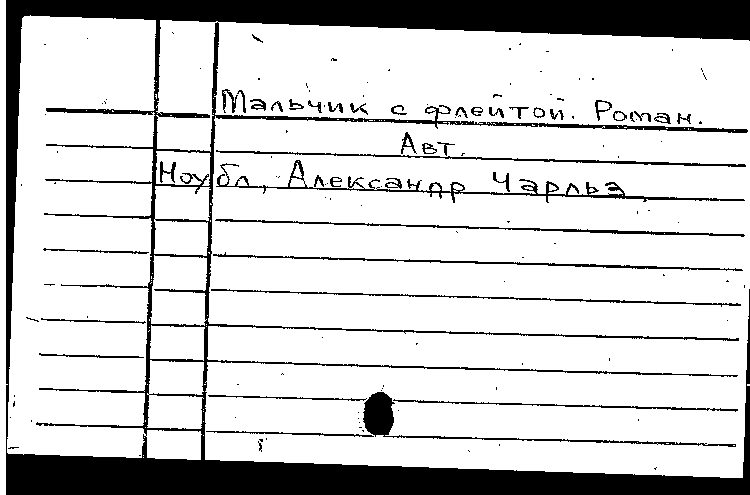 Мальчик с флейтой. Роман.
Авт.
Ноубл, Александр Чарльз